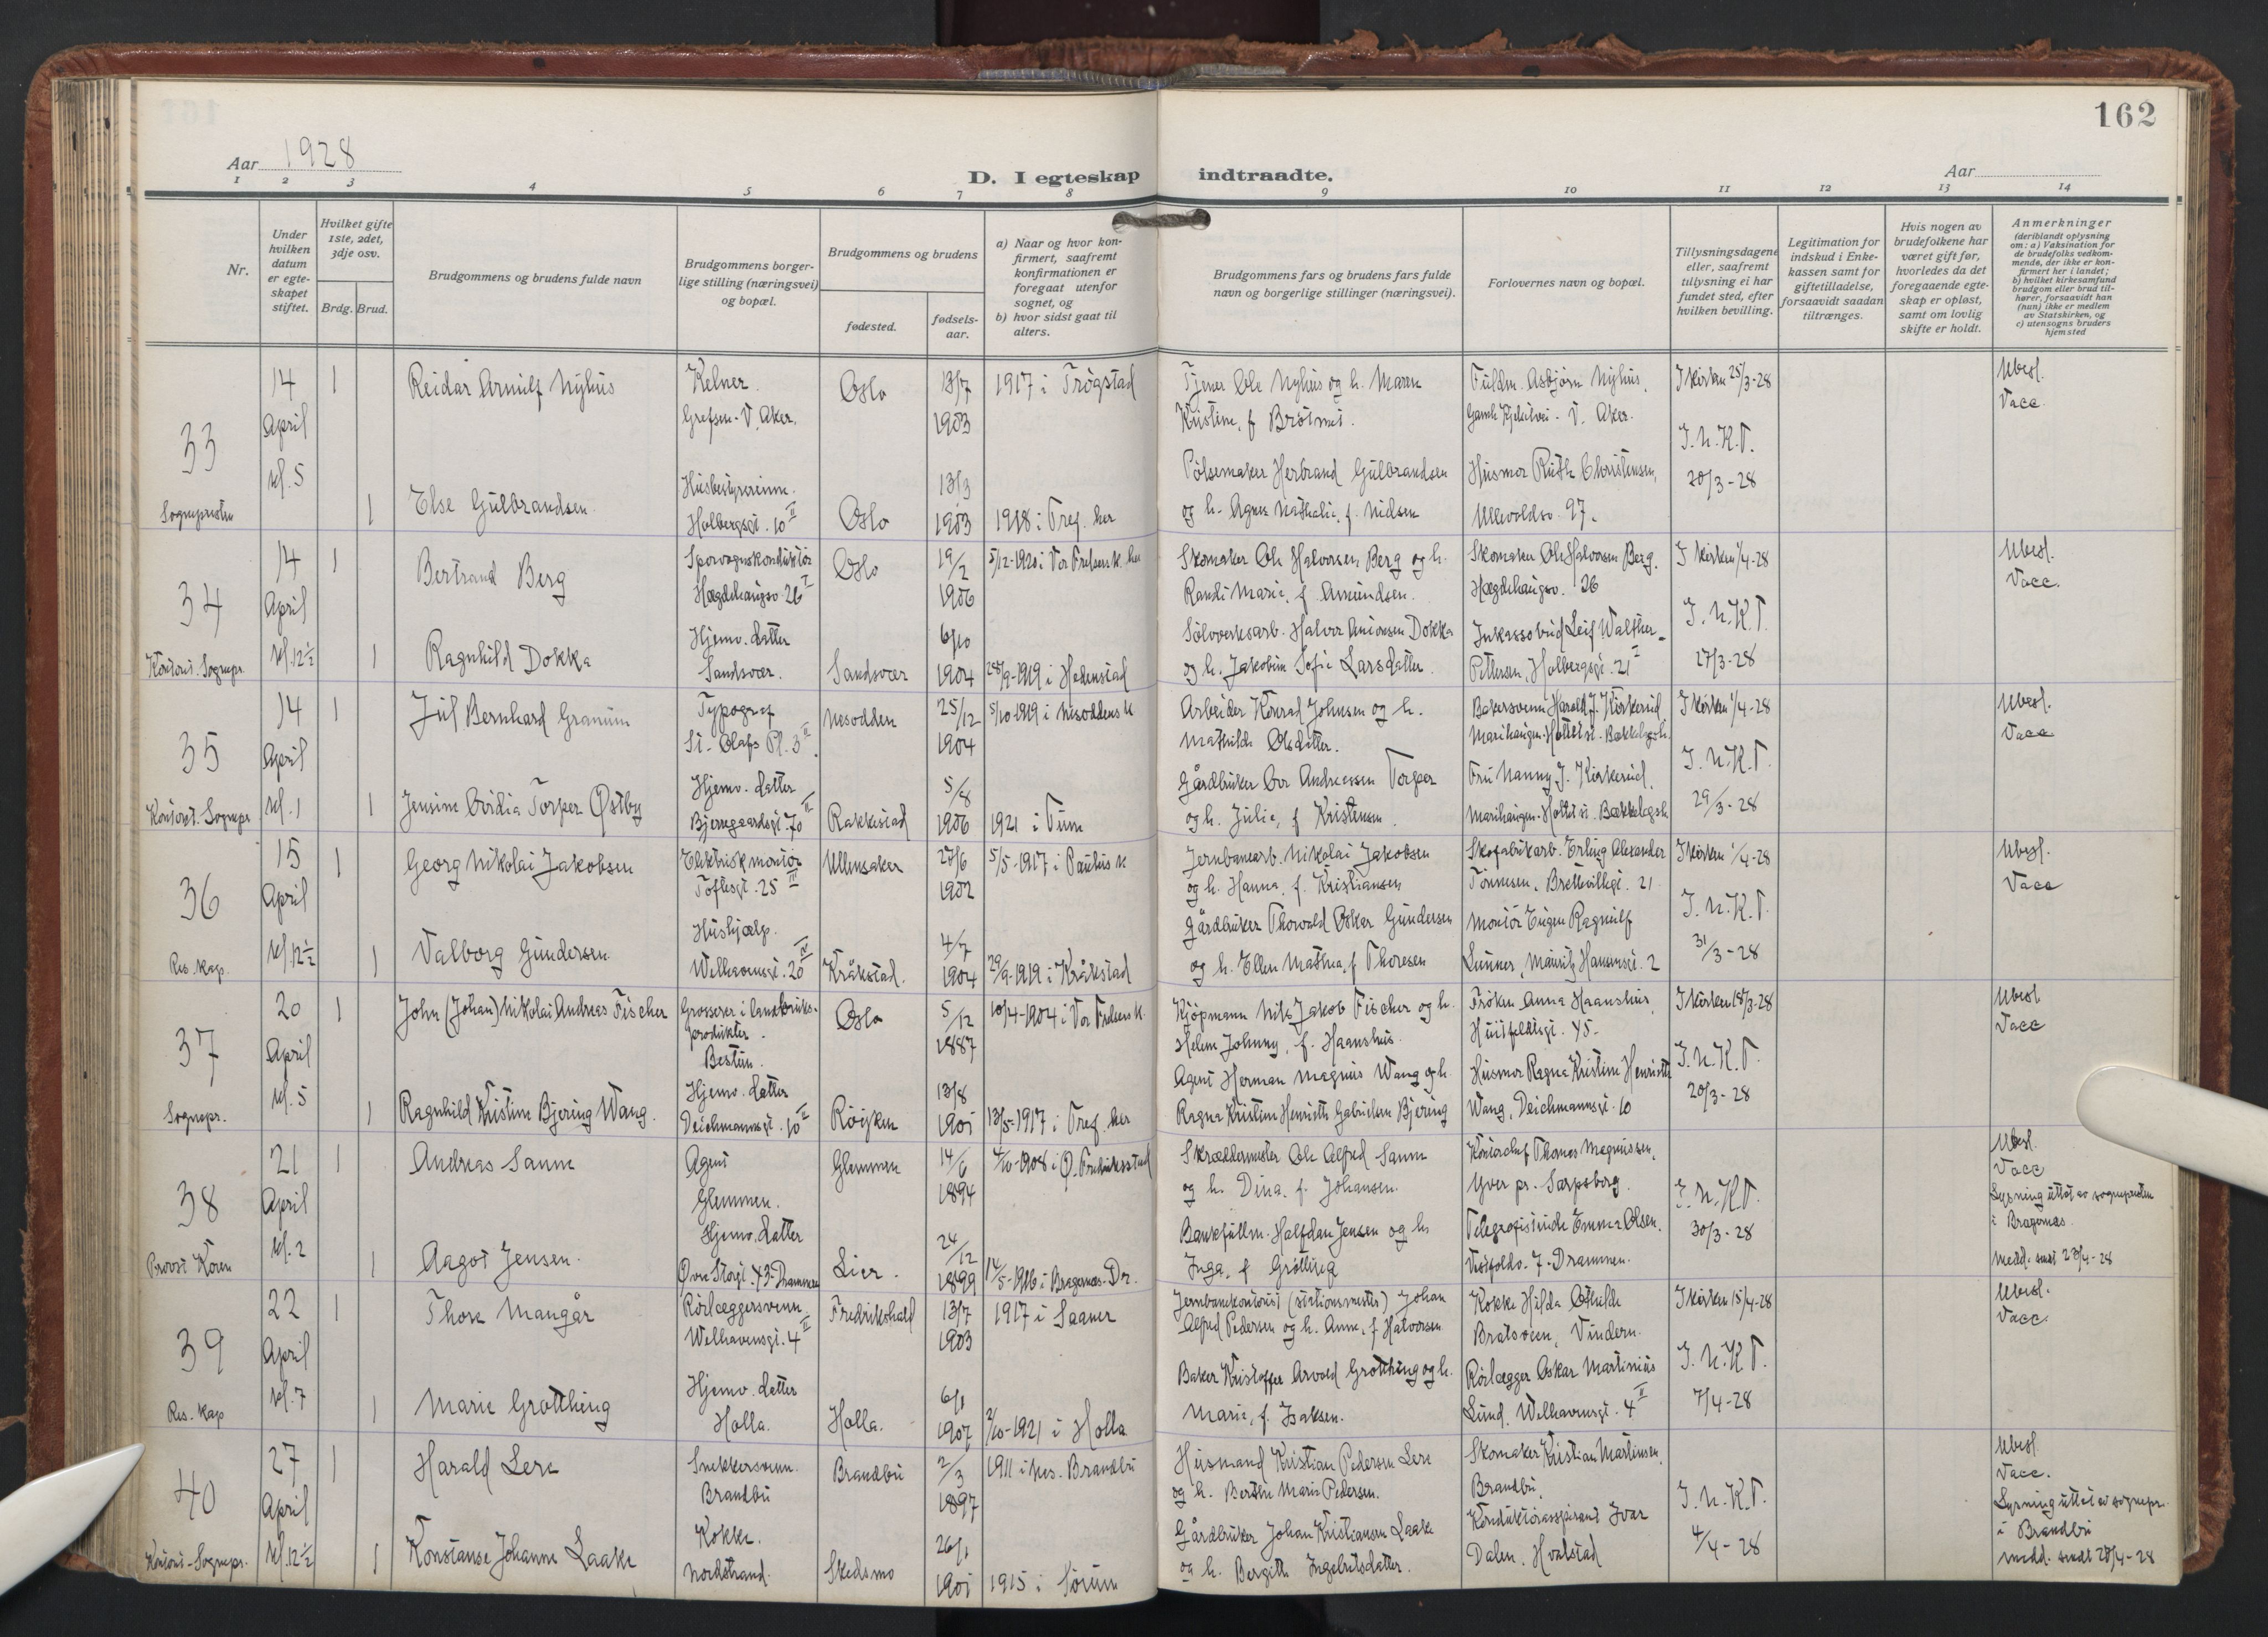 162
Aar 1928
D. I egteskap indtraadte.
Aar
1 2 3 4 5 6 7 8 9 10 11 12 13 14
Nr.
Under hvilken datum er egteskapet stiftet.
Hvilket gifte 1ste, 2det, 3dje osv.
Brdg. Brud.
Brudgommens og brudens fulde navn
Brudgommens borgerlige stilling (næringsvei) og bopæl.
Brudgommens og brudens
fødested.
fødselsaar.
a) Naar og hvor konfirmert, saafremt konfirmationen er foregaat utenfor sognet, og
b) hvor sidst gaat til alters.
Brudgommens fars og brudens fars fulde navn og borgerlige stillinger (næringsvei).
Forlovernes navn og bopæl.
Tillysningsdagene eller, saafremt tillysning ei har fundet sted, efter hvilken bevilling.
Legitimation for indskud i Enkekassen samt for giftetilladelse, forsaavidt saadan tiltrænges.
Hvis nogen av brudefolkene har været gift før, hvorledes da det foregaaende egteskap er opløst, samt om lovlig skifte er holdt.
Anmerkninger
(deriblandt oplysning om: a) Vaksination for de brudefolks vedkommende, der ikke er konfirmert her i landet; b) hvilket kirkesamfund brudgom eller brud tilhører, forsaavidt han (hun) ikke er medlem av Statskirken, og c) utensogns bruders hjemsted
33
Sognepresten
14 April kl. 5
1
Reidar Arnulf Nyhus
Kelner.
Grefsen - V. Aker.
Oslo
13/7 1903
1917 i Trøgstad
Tjener Ole Nyhus og h. Maren
Kristine, f.
Fuldm. Asbjørn Nyhus,
V. Aker.
I kirken 25/3-28
Ubesl.
Vacc.
1
Else Gulbrandsen
Husbestyrerinne.
Holbergsgt. 10 II
Oslo
13/3 1903
1918 i Tref. her
Pølsemaker Herbrand Gulbrandsen
og h. Agnes Nathalie, f. Nielsen
Husmor Ruth Christensen,
Ullevoldsv. 97.
I.N.K.T.
20/3-28
34
Kontorist-Sognepr.
14 April kl. 12½
1
Bertrand Berg
Sporvognskonduktør
Hægdehaugsv. 26 I
Oslo
19/2 1906
5/12-1920 i Vor Frelsers k. her
Skomaker Ole Halvorsen Berg og h.
Randi Marie, f. Amundsen.
Skomaker Ole Halvorsen Berg.
Hægdehaugsv. 26
I kirken 1/4-28
Ubesl.
Vacc.
1
Ragnhild Dokka
Hjemv. datter
Sandsvær.
Sandsvær
6/10 1904
28/9-1919 i Hedenstad
Sølvverksarb. Halvor Dokka
og h. Jakobine Sofie Larsdatter
Inkassobud Leif Walther-
Pettersen, Holbergsgt. 21 I
I.N.K.T.
27/3-28
35
Kontorist-Sognepr
14 April kl. 1
1
Jul Bernhard Granum
Typograf
St. Olafs Pl. 3 II.
Nesodden
25/12 1904
5/10-1919 i Nesoddens k
Arbeider Konrad Johnsen og h.
Mathilde Olsdatter.
Bakersvenn Harald J. Kirkerud,
I kirken 1/4-28
Ubesl.
Vacc
1
Jensine Ovidia Torper Østby
Hjemv. datter
Bjerregaardsgt. 70 II
Rakkestad
5/8 1906
1921 i Tune
Gårdbruker Ove Andreassen Torper
og h. Julie, f. Kristensen.
Fru Nanny J. Kirkerud,
I.N.K.T.
29/3-28
36
Res. kap.
15 April kl. 12½
1
Georg Nikolai Jakobsen
Elektriskmontør
Toftesgt. 25 III
Ullensaker
27/6 1902
5/5-1917 i Paulus k
Jernbanearb. Nikolai Jakobsen
og h. Hanna, f. Kristiansen
Skofabrikarb. Erling Alexander
Tønnesen, Brettevillegt. 21
I kirken 1/4-28
Ubesl.
Vacc
1
Valborg Gundersen
Hushjælp.
Welhavensgt. 20 IV
Kråkstad.
4/7 1904
29/9-1919 i Kråkstad
Gårdbruker Thorvald Oskar Gundersen
og h. Ellen Mathea, f. Thoresen
Montør Eugen Ragnulf
Lunner, Mauritz Hansensgt. 2
I.N.K.T.
31/3-28
37
Sognepr.
20 April kl. 5
1
John (Johan) Nikolai Andreas Fischer
Grosserer i landbruks-
produkter.
Bestun.
Oslo
5/12 1887
10/4-1904 i Vor Frelsers k.
Kjøpmann Nils Jakob Fischer og h.
Helene Johnny, f. Haanshus.
Frøken Anna Haanshus,
Huitfeldtsgt. 45.
I kirken 18/3-28
Ubesl
Vacc
1
Ragnhild Kristine Bjering Wang.
Hjemv. datter
Deichmannsgt. 10 II
Røyken
13/8 1901
13/5-1917 i Tref. her
Agent Herman Magnus Wang og h.
Ragna Kristine Henriette Gabrielsen Bjering
Husmor Ragna Kristine Henriette
Wang, Deichmannsgt. 10
I.N.K.T.
20/3-28
38
Provst Koren
21 April kl. 2
1
Andreas Sanne
Agent
Glemmen.
Glemmen
14/6 1894
4/10-1908 i Ø. Fredriksstad
Skræddermester Ole Alfred Sanne
og h. Dina, f. Johansen.
Kontorchef Thomas Magnussen,
Yver pr. Sarpsborg.
Ubesl.
Vacc
Lysning uttat av sognepresten
i Bragernes.
Medd. sendt 23/4-28
1
Aagot Jensen.
Hjemv. datter
Øvre Storgt. 43-Drammen
Lier.
24/12 1899
14/5-1916 i Bragernes-Dr.
Bankfullm. Halfdan Jensen og h.
Inga, f. Grøtting
Telegrafistinde Emma Olsen,
7-Drammen.
I.N.K.T.
30/3-28
39
Res. kap
22 April kl. 7
1
Thore Mangår
Rørlæggersvenn.
Welhavensgt. 4 II
Fredrikshald
13/7 1903
1917 i Saaner
Jernbanekontorist (stationsmester) Johan
Alfred Pedersen og h. Anne, f. Halvorsen
Kokke Hilda Othilde
Bratsveen, Vindern.
I kirken 15/4-28
Ubesl.
Vacc.
1
Marie Grotthing
Hjemv. datter
Holla.
Holla.
6/1 1907
2/10-1921 i Holla
Baker Kristoffer Arvold Grotthing og h.
Marie, f. Isaksen.
Rørlægger Oskar Martinius
Lund, Welhavensgt. 4 II
I.N.K.T.
7/4-28
40
Kontorist-Sognepr.
27 April kl. 12½
1
Harald Lere
Snekkersvenn.
Brandbu
Brandbu
2/3 1897
1911 i Nes. Brandbu
Husmand Kristian Pedersen Lere
og h. Berthe Marie Pedersen.
Skomaker Kristian Martinsen,
Brandbu.
Ubesl
Vacc.
Lysning uttat av sognepr.
i Brandbu
medd. sendt 28/4-28
1
Konstanse Johanne Laake
Kokke.
Nordstrand.
Skedsmo
26/1 1901
1915 i Sørum
Gårdbruker Johan Kristiansen Laake
og h. Bergithe Ingebretsdatter.
Konduktøraspirant Ivar
Dalen, Hvalstad
I.N.K.T.
4/4-28